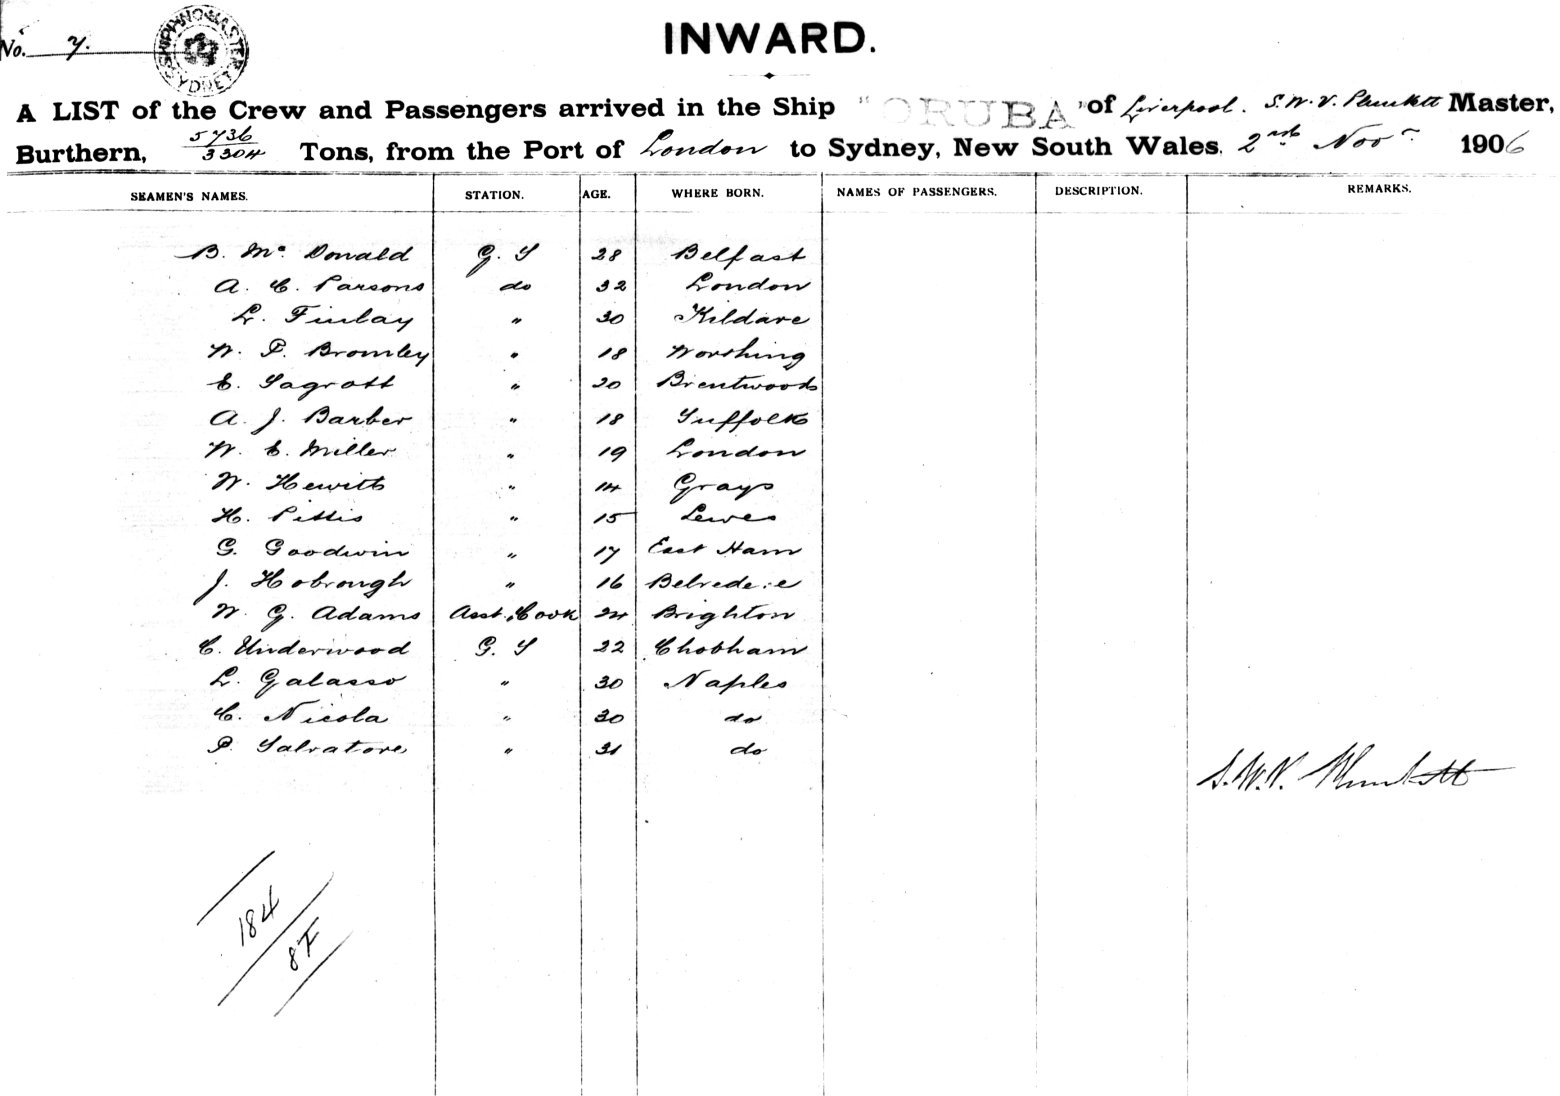 No. 7.
SHIPPING MASTER SYDNEY
INWARD.
A LIST of the Crew and Passengers arrived in the Ship "ORUBA" of Liverpool. S.W.V. Plunkett Master,
Burthern, 5736/3304 Tons, from the Port of London to Sydney, New South Wales. 2nd Novr 1906
SEAMEN'S NAMES. STATION. AGE. WHERE BORN. NAMES OF PASSENGERS. DESCRIPTION. REMARKS.
B. McDonald G. S 28 Belfast
A. C. Parsons do 32 London
L. Finlay " 30 Kildare
W. P. Bromley " 18 Worthing
E. Sagrott " 20 Brentwood
A. J. Barber " 18 Suffolk
W. E. Miller " 19 London
W. Hewitt " 14 Grays
H. Pittis " 15 Lewes
G. Goodwin " 17 East Ham
J. Hobrough " 16 Belvedere
W. G. Adams Asst. Cook 24 Brighton
C. Underwood G. S 22 Chobham
L. Galasso " 30 Naples
C. Nicola " 30 do
P. Salvatore " 31 do
S.W.V. Plunkett
184
8F